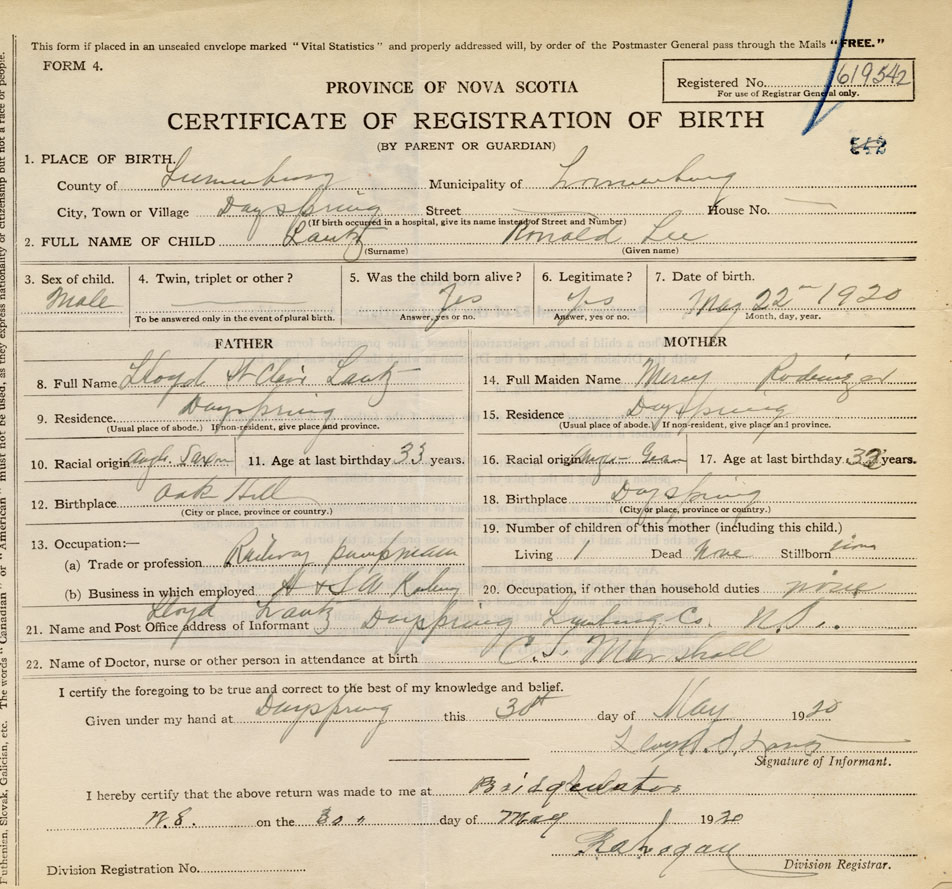 This form if placed in an unsealed envelope marked "Vital Statistics" and properly addressed will, by order of the Postmaster General pass through the Mails "FREE."
FORM 4.
Registered No. 619542
For use of Registrar General only.
PROVINCE OF NOVA SCOTIA
CERTIFICATE OF REGISTRATION OF BIRTH
(BY PARENT OR GUARDIAN)
542
1. PLACE OF BIRTH.
County of Lunenburg Municipality of Lunenburg
City, Town or Village Dayspring Street House No.
(If birth occurred in a hospital, give its name instead of Street and Number)
2. FULL NAME OF CHILD Lantz Ronald Lee
(Surname) (Given name)
3. Sex of child. 4. Twin, triplet or other? 5. Was the child born alive? 6. Legitimate? 7. Date of birth.
Male Yes Yes May 22 1920
To be answered only in the event of plural birth. Answer, yes or no. Answer, yes or no. Month, day, year.
FATHER
8. Full Name Lloyd St Clair Lantz
9. Residence. Dayspring
(Usual place of abode.) If non-resident, give place and province.
10. Racial origin Anglo Saxon 11. Age at last birthday 33 years.
12. Birthplace Oak Hill
(City or place, province or country.)
13. Occupation:—
(a) Trade or profession Railway pumpman
(b) Business in which employed H & S W Railway
MOTHER
14. Full Maiden Name Mercy
15. Residence Dayspring
(Usual place of abode.) If non-resident, give place and province.
16. Racial origin 17. Age at last birthday years.
18. Birthplace Dayspring
(City or place, province or country.)
19. Number of children of this mother (including this child.)
Living 1 Dead None Stillborn
20. Occupation, if other than household duties none
21. Name and Post Office address of Informant Lloyd Lantz Dayspring Co. N.S.
22. Name of Doctor, nurse or other person in attendance at birth Marshall
I certify the foregoing to be true and correct to the best of my knowledge and belief.
Given under my hand at Dayspring this 30th day of May 1920
Signature of Informant.
I hereby certify that the above return was made to me at Bridgewater
N.S. on the 30 day of May 1920
Division Registrar.
Division Registration No.